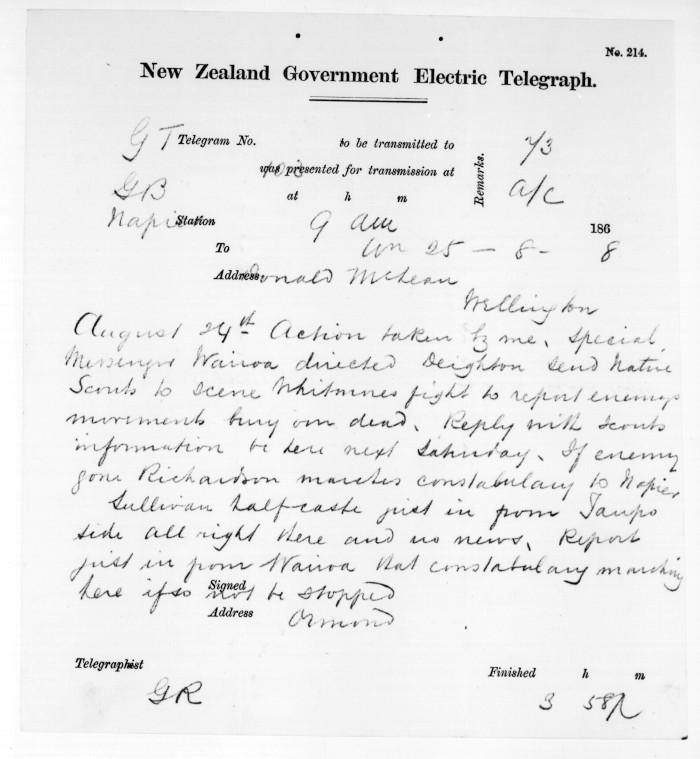 No. 214.
New Zealand Government Electric Telegraph.
GT Telegram No. to be transmitted to 7/3
was presented for transmission at
Remarks.
GB at h m a/c
Napier Station 9 am 186
To on 25 - 8 - 8
Address Donald McLean
Wellington
August 24th Action taken by me, special
Messenger Wairoa directed Deighton send Native
Scouts to scene Whitmores fight to report enemys
movements bury our dead. Reply with scouts
information be here next Saturday. If enemy
gone Richardson marches constabulary to Napier
Sullivan half-caste just in from Taupo
side all right there and no news. Report
just in from Wairoa that constabulary marching
here if so not be stopped
Signed
Address Ormond
Telegraphist Finished h m
GR 3 58p